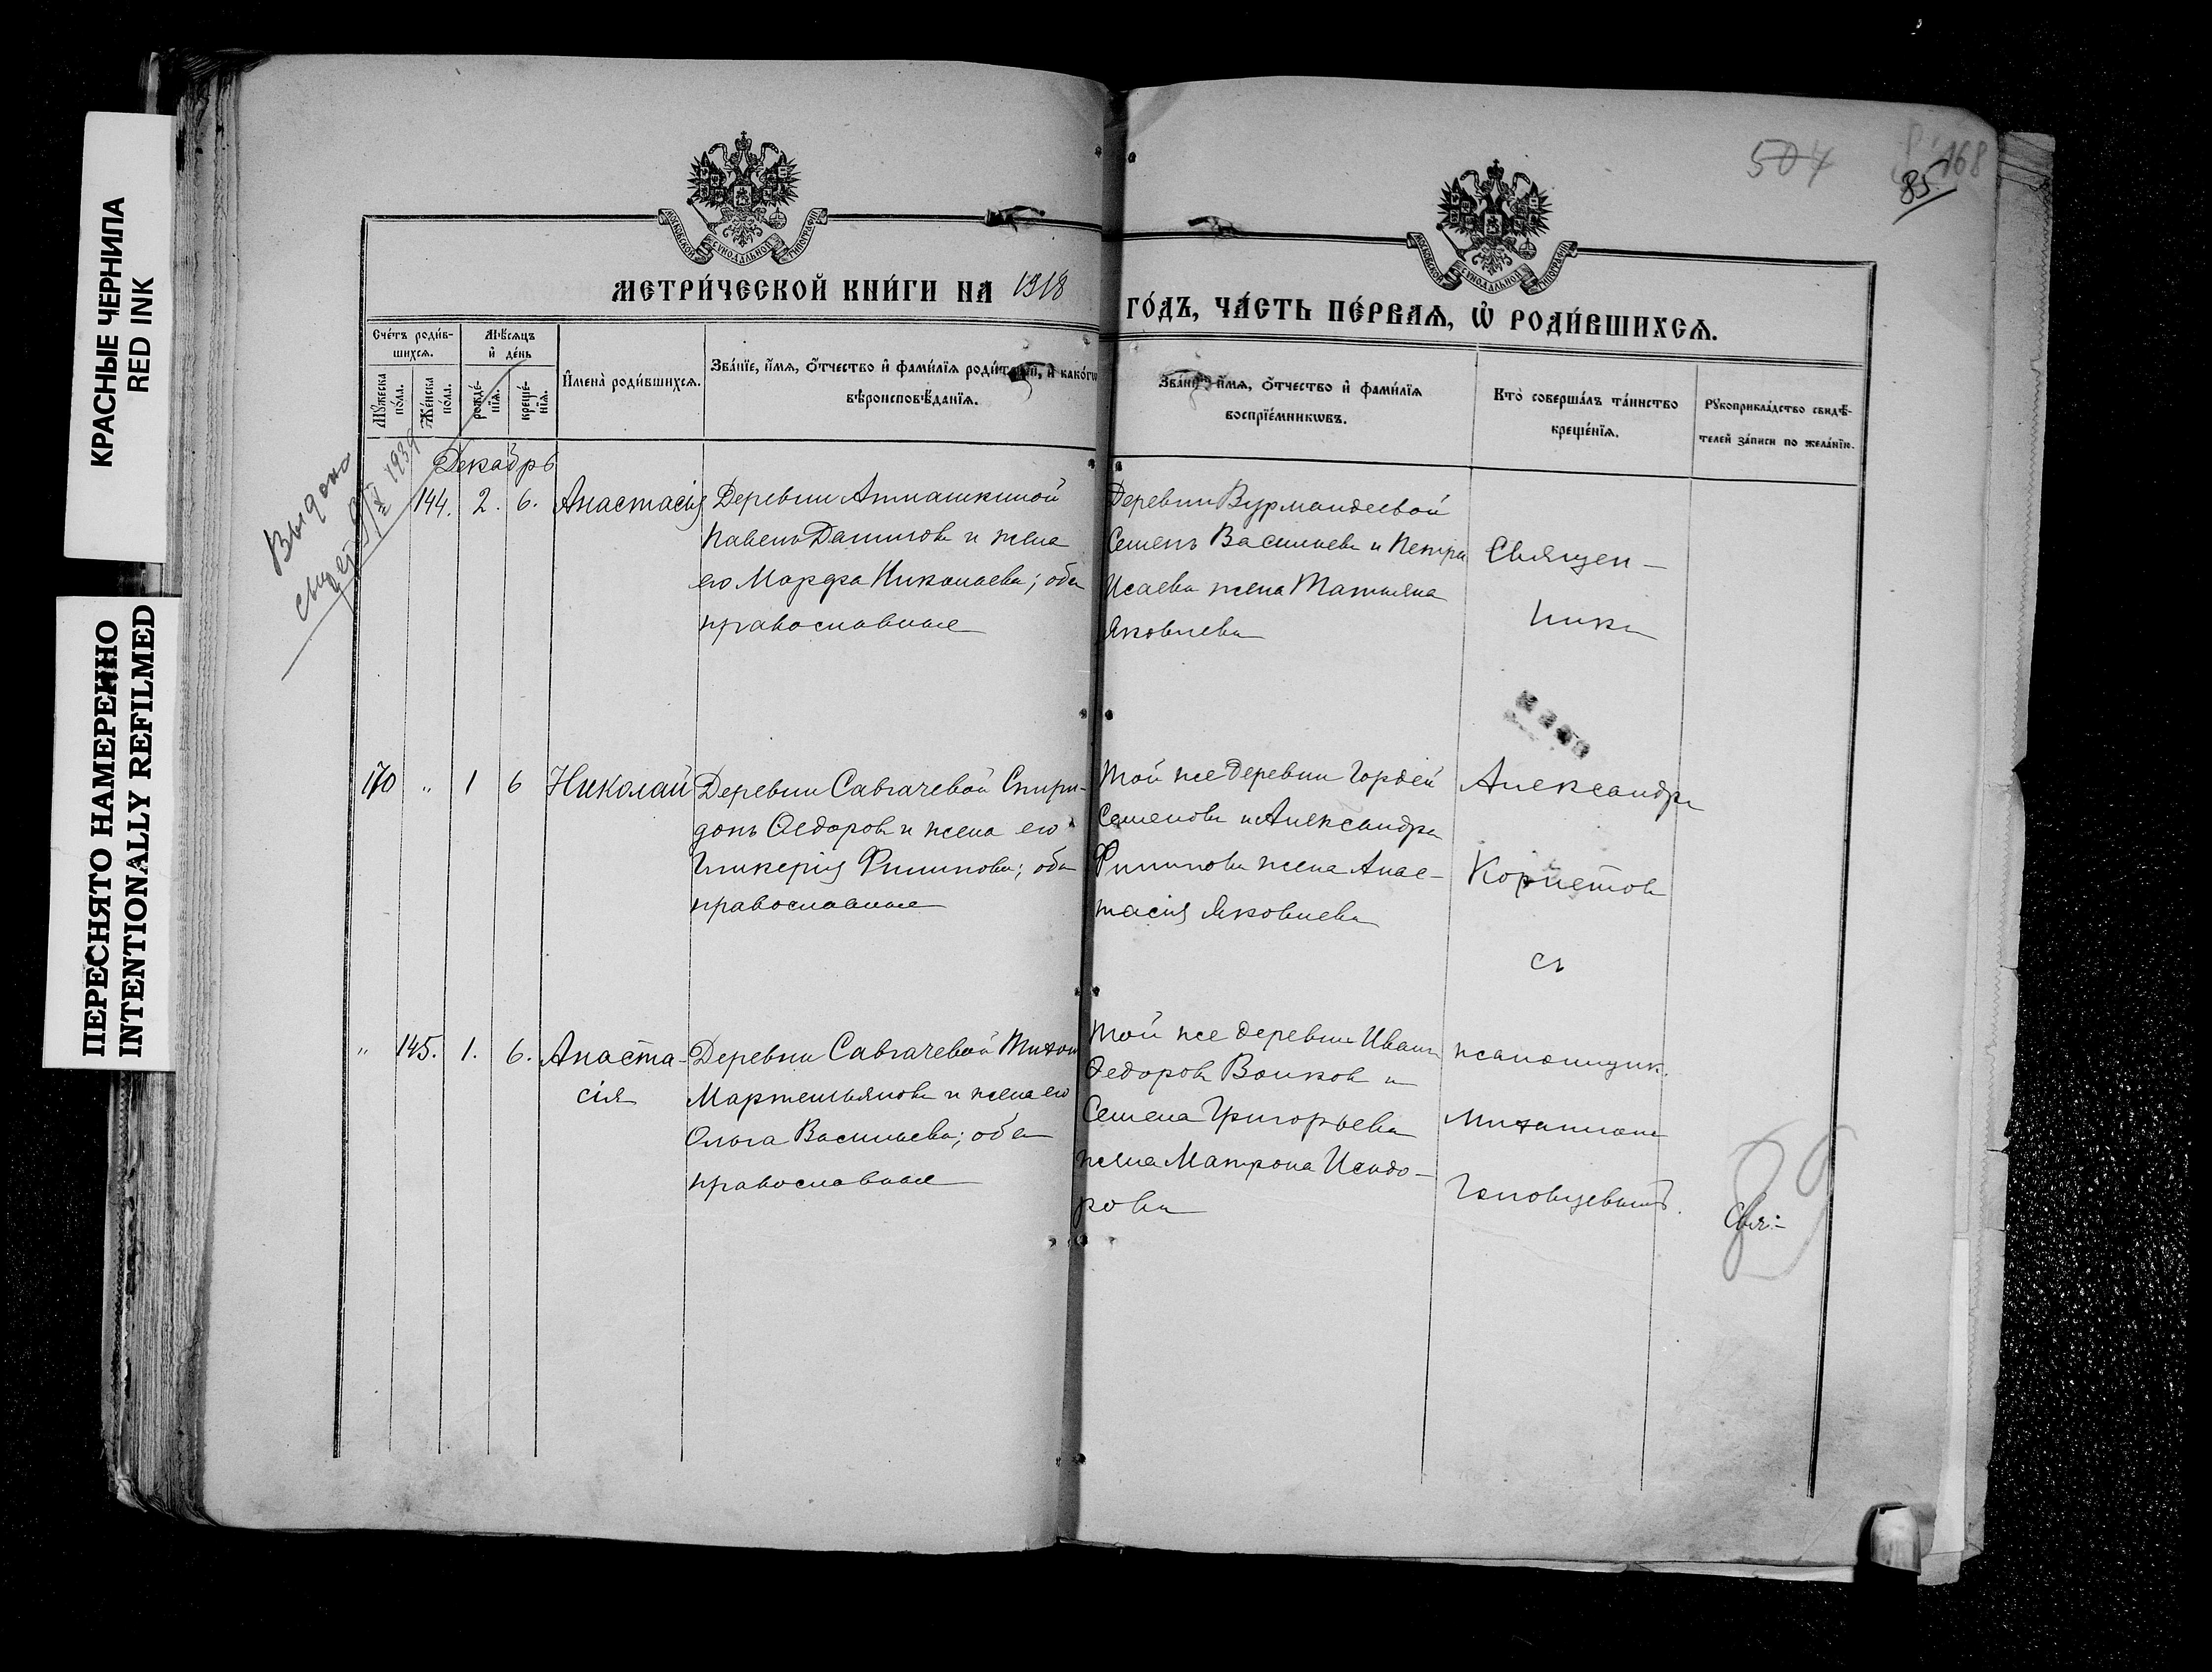 КРАСНЫЕ ЧЕРНИЛА
RED INK
ПЕРЕСНЯТО НАМЕРЕННО
INTENTIONALLY REFILMED
504
168
85
МОСКОВСКОЙ СѴНОДАЛЬНОЙ ТИПОГРАФІИ
МОСКОВСКОЙ СѴНОДАЛЬНОЙ ТИПОГРАФІИ
МЕТРИ́ЧЕСКОЙ КНИ́ГИ НА 1918
ГО́ДЪ, ЧА́СТЬ ПЕ́РВАѦ, Ѽ РОДИ́ВШИХСѦ.
Сче́тъ роди́в-
шихсѧ.
Мѣ́сѧцъ
и҆ де́нь
Мꙋ́жеска
по́ла.
Же́нска
по́ла.
рожде́-
нїѧ.
креще́-
нїѧ.
И҆мена̀ роди́вшихсѧ.
Зва́нїе, и҆́мѧ, ѻ҆́тчество и҆ фами́лїѧ роди́телей, и҆ како́гѡ
вѣроисповѣ́данїѧ.
Зва́нїе, и҆́мѧ, ѻ҆́тчество и҆ фами́лїѧ
воспрїе́мникѡвъ.
Кто̀ соверша́лъ та́инство
креще́нїѧ.
Рꙋкоприкла́дство свидѣ́-
телей за́писи по жела́нїю.
Выдано
свид
1939
Декабрь
144. 2. 6. Анастасія
Деревни Атлашкиной
Павелъ Даниловъ и жена
его Марфа Николаева; оба
православные
Деревни Вурмандеевой
Семенъ Васильевъ и Петра
Исаева жена Татьяна
Яковлева
Священ-
никъ
170 „ 1 6 Николай
Деревни Савгачевой Спири-
донъ Ѳедоровъ и жена его
Гликерія Филипова; оба
православные
Той же деревни Гордей
Семеновъ и Александра
Филипова жена Анас-
тасія Яковлева
Александръ
Корнетовъ
съ
„ 145. 1. 6. Анаста-
сія
Деревни Савгачевой Тихонъ
Мартемьяновъ и жена его
Ольга Васильева; оба
православные
Той же деревни Иванъ
Ѳедоровъ Волковъ и
Семена Григорьева
жена Матрона Исидо-
рова
псаломщик.
Михаиломъ
Головцевымъ.
Свя:-